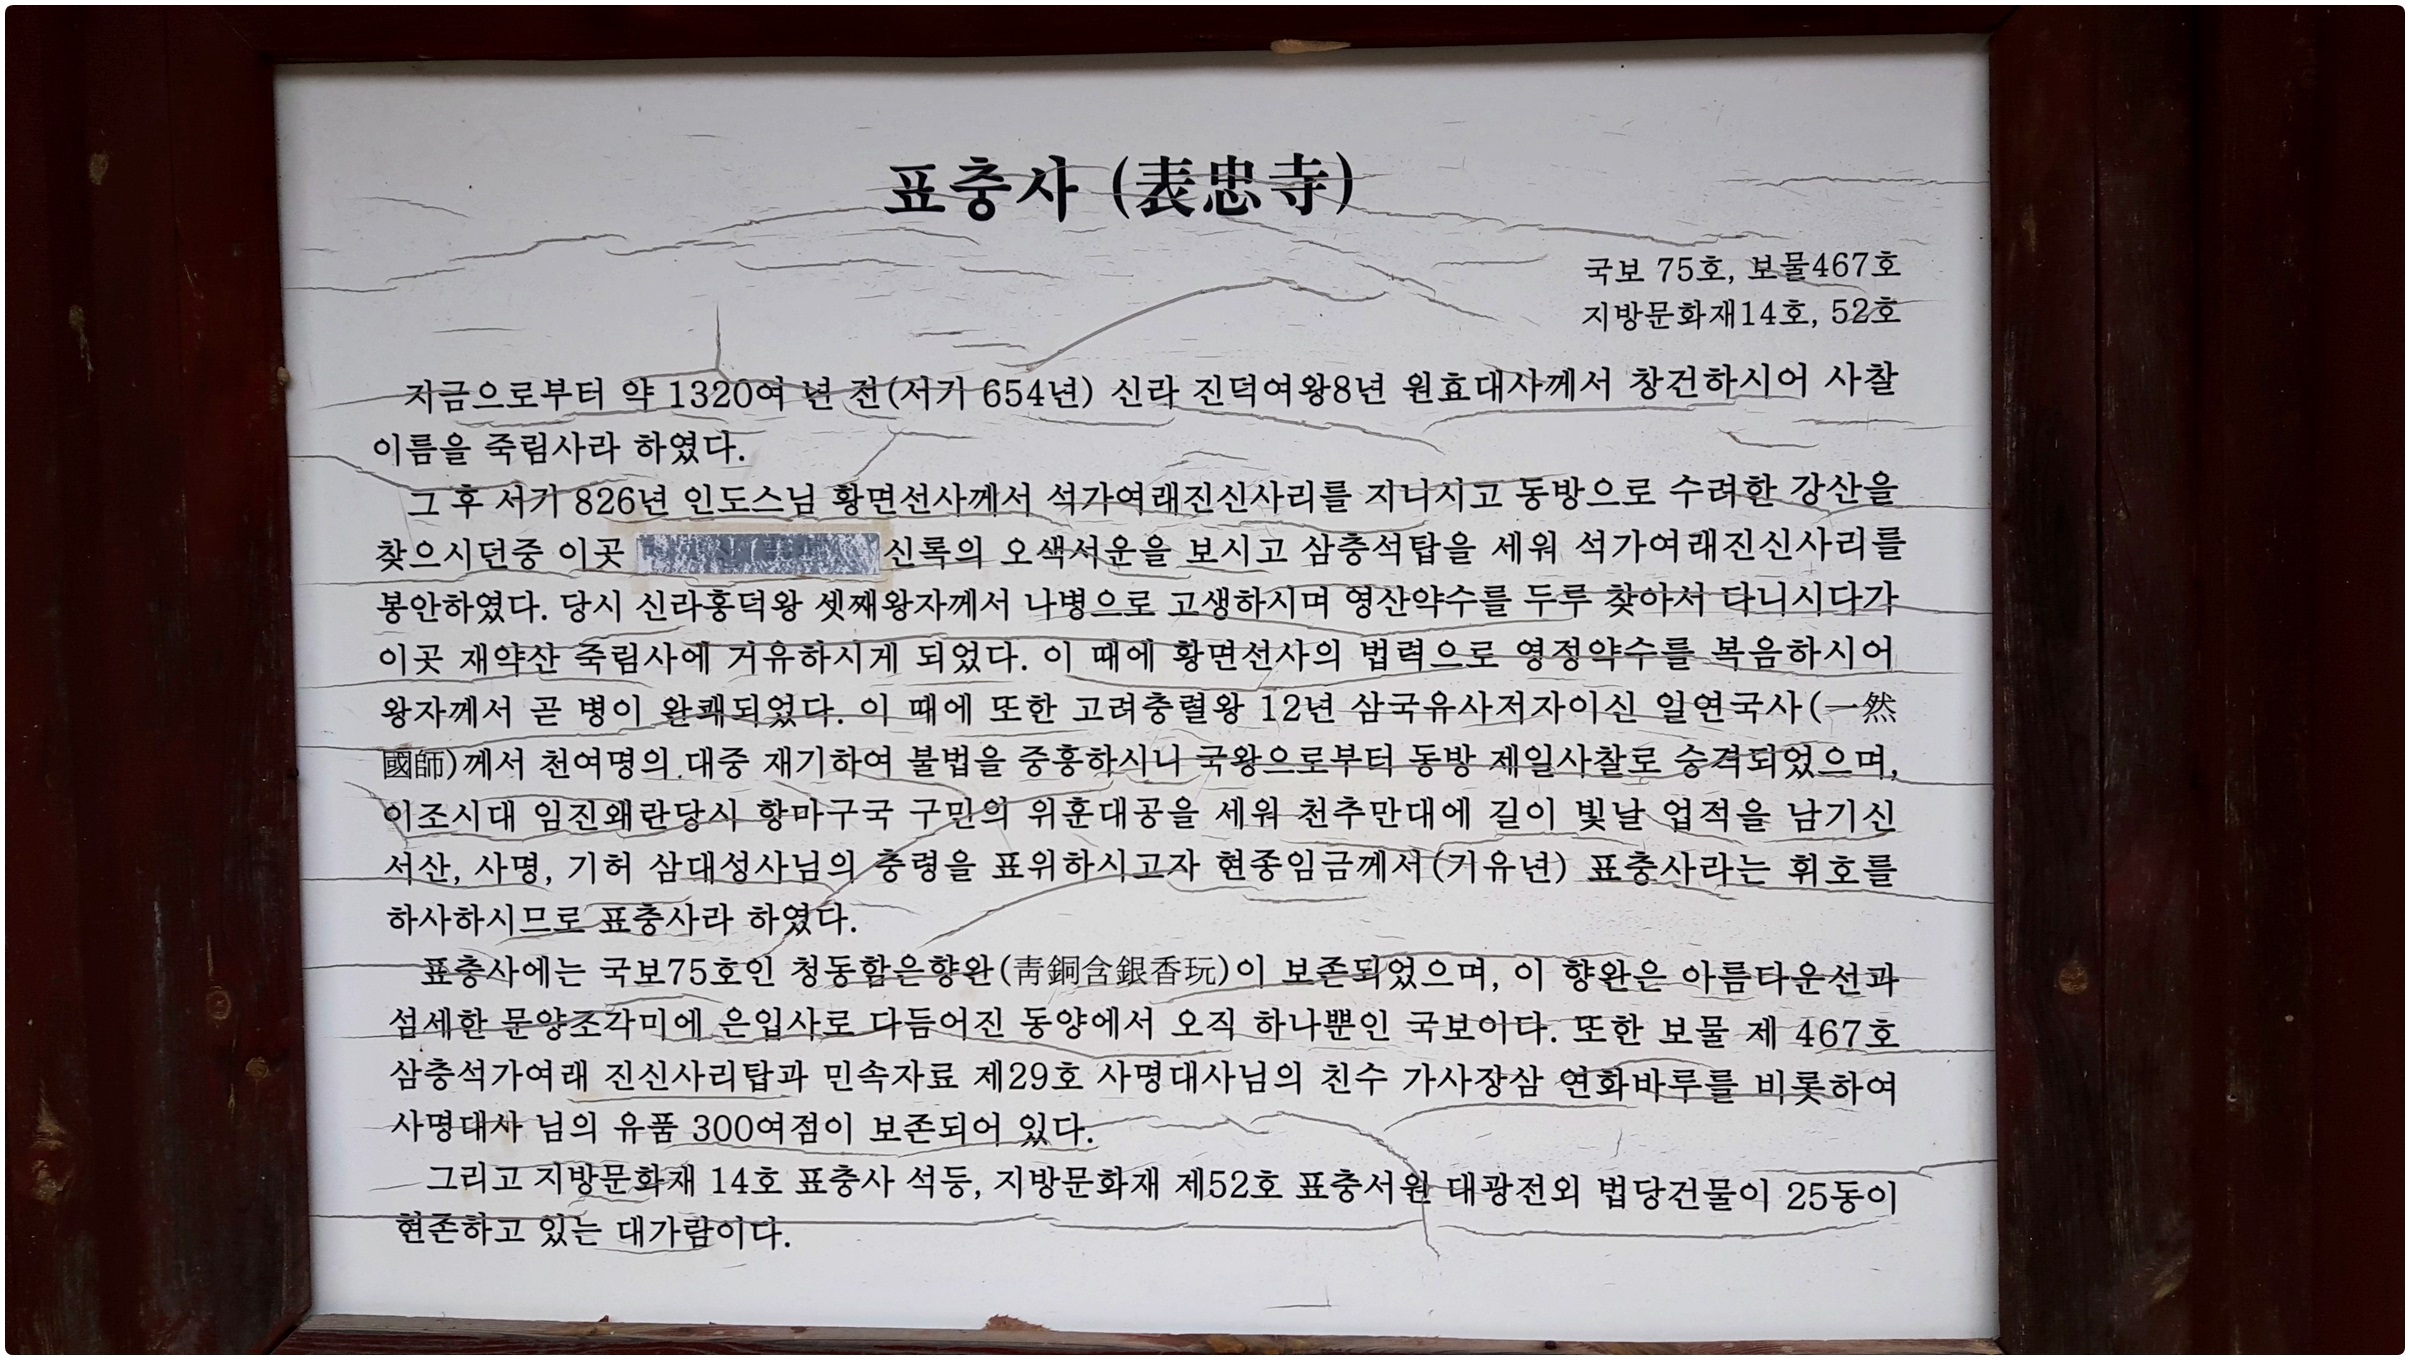 표충사 (表忠寺)
국보 75호, 보물467호
지방문화재14호, 52호
지금으로부터 약 1320여 년 전(서기 654년) 신라 진덕여왕8년 원효대사께서 창건하시어 사찰
이름을 죽림사라 하였다.
그 후 서기 826년 인도스님 황면선사께서 석가여래진신사리를 지니시고 동방으로 수려한 강산을
찾으시던중 이곳 신록의 오색서운을 보시고 삼층석탑을 세워 석가여래진신사리를
봉안하였다. 당시 신라흥덕왕 셋째왕자께서 나병으로 고생하시며 영산약수를 두루 찾아서 다니시다가
이곳 재약산 죽림사에 거유하시게 되었다. 이 때에 황면선사의 법력으로 영정약수를 복음하시어
왕자께서 곧 병이 완쾌되었다. 이 때에 또한 고려충렬왕 12년 삼국유사저자이신 일연국사(一然
國師)께서 천여명의 대중 재기하여 불법을 중흥하시니 국왕으로부터 동방 제일사찰로 승격되었으며,
이조시대 임진왜란당시 항마구국 구민의 위훈대공을 세워 천추만대에 길이 빛날 업적을 남기신
서산, 사명, 기허 삼대성사님의 충령을 표위하시고자 현종임금께서(기유년) 표충사라는 휘호를
하사하시므로 표충사라 하였다.
표충사에는 국보75호인 청동함은향완(靑銅含銀香玩)이 보존되었으며, 이 향완은 아름다운선과
섬세한 문양조각미에 은입사로 다듬어진 동양에서 오직 하나뿐인 국보이다. 또한 보물 제 467호
삼층석가여래 진신사리탑과 민속자료 제29호 사명대사님의 친수 가사장삼 연화바루를 비롯하여
사명대사 님의 유품 300여점이 보존되어 있다.
그리고 지방문화재 14호 표충사 석등, 지방문화재 제52호 표충서원 대광전외 법당건물이 25동이
현존하고 있는 대가람이다.